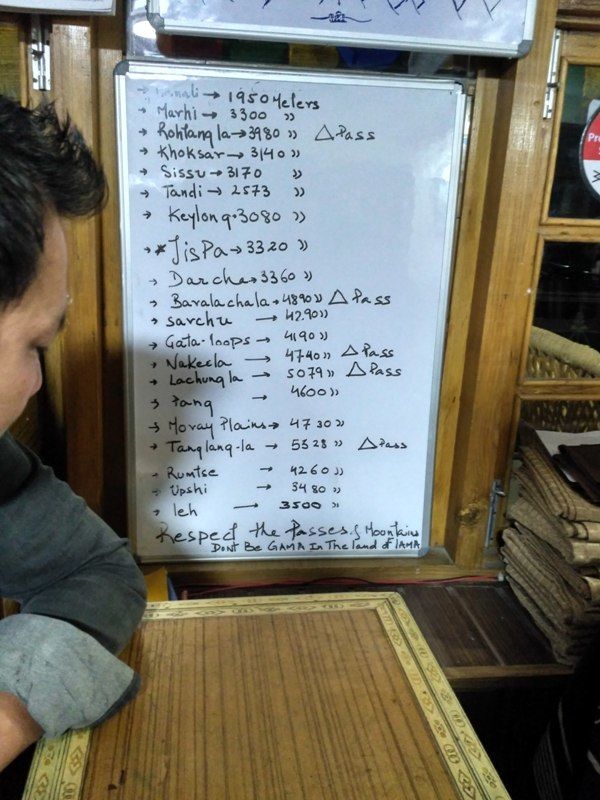 → 1950 Meters
→ Marhi → 3300 〃
→ Rohtang la → 3980 〃 △ Pass
→ Khoksar → 3140 〃
→ Sissu → 3170 〃
→ Tandi → 2573 〃
→ Keylong . 3080 〃
→ * JisPa → 3320 〃
→ Darcha → 3360 〃
→ Baralachala → 4890 〃 △ Pass
→ sarchu → 4290 〃
→ Gata-loops → 4190 〃
→ Nakeela → 4740 〃 △ Pass
→ Lachungla → 5079 〃 △ Pass
→ Pang → 4600 〃
→ Moray Plains → 4730 〃
→ Tanglang-la → 5328 〃 △ Pass
→ Rumtse → 4260 〃
→ Upshi → 3480 〃
→ leh → 3500 〃
Respect the Passes & Mountains
DONT BE GAMA IN The land of LAMA